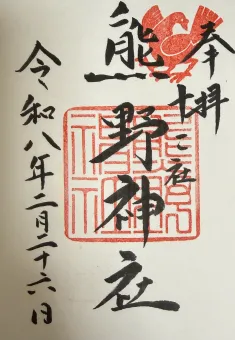 奉拝
十二社
熊野神社
令和八年二月二十六日